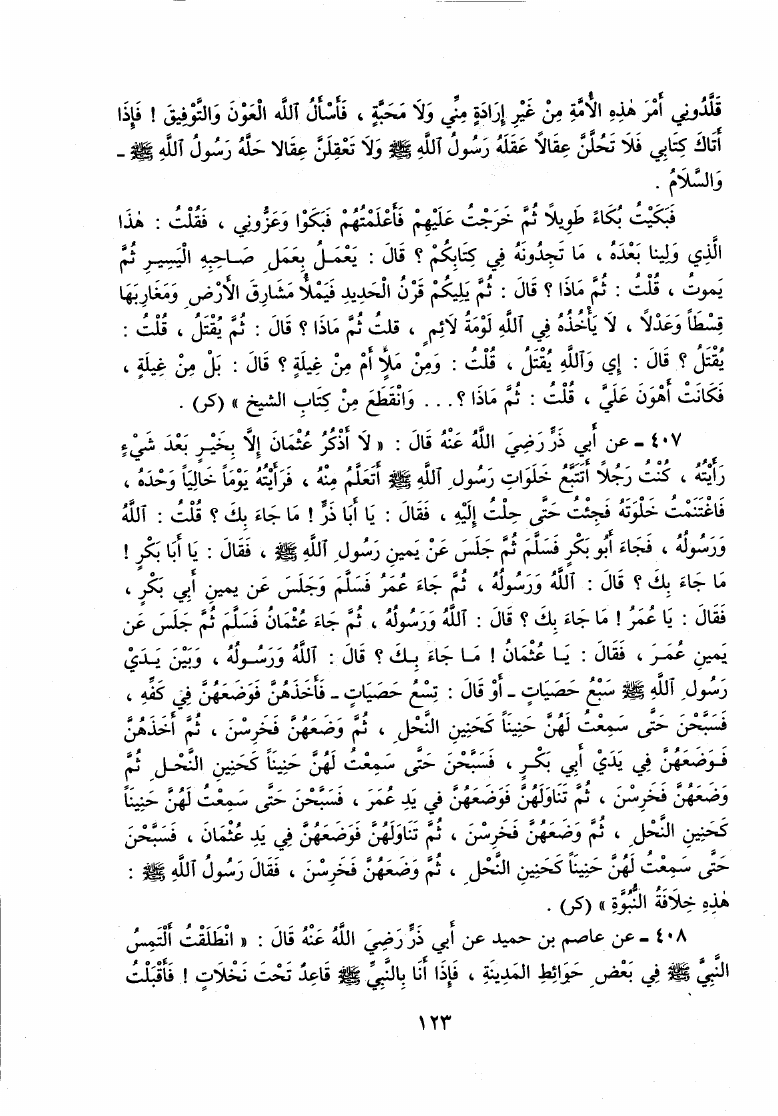 قَلَّدُونِي أَمْرَ هٰذِهِ الأُمَّةِ مِنْ غَيْرِ إِرَادَةٍ مِنِّي وَلَا مَحَبَّةٍ ، فَأَسْأَلُ ٱللَّه الْعَوْنَ وَالتَّوْفِيقَ ! فَإِذَا
أَتَاكَ كِتَابِي فَلَا تَحُلَّنَّ عِقَالاً عَقَلَهُ رَسُولُ ٱللَّهِ ﷺ وَلَا تَعْقِلَنَّ عِقَالا حَلَّهُ رَسُولُ ٱللَّهِ ﷺ -
وَالسَّلَامُ .
فَبَكَيْتُ بُكَاءً طَوِيلاً ثُمَّ خَرَجْتُ عَلَيْهِمْ فَأَعْلَمْتُهُمْ فَبَكَوْا وَعَزُّونِي ، فَقُلْتُ : هٰذَا
الَّذِي وَلِينا بَعْدَهُ ، مَا تَجِدُونَهُ فِي كِتَابِكُمْ ؟ قَالَ : يَعْمَلُ بِعَمَلِ صَاحِبِهِ الْيَسِيرِ ثُمَّ
يَموتُ ، قُلْتُ : ثُمَّ مَاذَا ؟ قَالَ : ثُمَّ يَلِيكُمْ قَرْنُ الْحَدِيدِ فَيَمْلأُ مَشَارِقَ الأَرْضِ وَمَغَارِبَهَا
قِسْطَاً وَعَدْلاً ، لَا يَأْخُذُهُ فِي اللَّهِ لَوْمَةُ لَائِمٍ ، قلتُ ثُمَّ مَاذَا ؟ قالَ : ثُمَّ يُقْتَلُ ، قُلْتُ :
يُقْتَلُ ؟ قَالَ : إِي وَٱللَّهِ يُقْتَلُ ، قُلْتُ : وَمِنْ مَلأٍ أَمْ مِنْ غِيلَةٍ ؟ قَالَ : بَلْ مِنْ غِيلَةٍ ،
فَكَانَتْ أَهْوَنَ عَلَيَّ ، قُلْتُ : ثُمَّ مَاذَا ؟ ... وَانْقَطَعَ مِنْ كِتَابِ الشيخ » (كر) .
٤٠٧ - عن أَبِي ذَرٍّ رَضِيَ اللَّهُ عَنْهُ قَالَ : « لَا أَذْكُرُ عُثْمَانَ إِلَّا بِخَيْرٍ بَعْدَ شَيْءٍ
رَأَيْتُهُ ، كُنْتُ رَجُلاً أَتَتَبَّعُ خَلَوَاتِ رَسُولِ ٱللَّهِ ﷺ أَتَعَلَّمُ مِنْهُ ، فَرَأَيْتُهُ يَوْماً خَالِياً وَحْدَهُ ،
فَاغْتَنَمْتُ خَلْوَتَهُ فَجِئْتُ حَتَّى جلْتُ إِلَيْهِ ، فَقَالَ : يَا أَبَا ذَرٍّ ! مَا جَاءَ بِكَ ؟ قُلْتُ : ٱللَّهُ
وَرَسُولُهُ ، فَجَاءَ أَبُو بَكْرٍ فَسَلَّمَ ثُمَّ جَلَسَ عَنْ يَمينِ رَسُولِ ٱللَّهِ ﷺ ، فَقَالَ : يَا أَبَا بَكْرٍ !
مَا جَاءَ بِكَ ؟ قَالَ : ٱللَّهُ وَرَسُولُهُ ، ثُمَّ جَاءَ عُمَرُ فَسَلَّمَ وَجَلَسَ عَن يمينِ أَبِي بَكْرٍ ،
فَقَالَ : يَا عُمَرُ ! مَا جَاءَ بِكَ ؟ قَالَ : ٱللَّهُ وَرَسُولُهُ ، ثُمَّ جَاءَ عُثْمَانُ فَسَلَّمَ ثُمَّ جَلَسَ عَن
يَمينِ عُمَرَ ، فَقَالَ : يَا عُثْمَانُ ! مَا جَاءَ بِكَ ؟ قَالَ : ٱللَّهُ وَرَسُولُهُ ، وَبَيْنَ يَدَيْ
رَسُولِ ٱللَّهِ ﷺ سَبْعُ حَصَيَاتٍ - أَوْ قَالَ : تِسْعُ حَصَيَاتٍ - فَأَخَذَهُنَّ فَوَضَعَهُنَّ فِي كَفِّهِ ،
فَسَبَّحْنَ حَتَّى سَمِعْتُ لَهُنَّ حَنِيناً كَحَنِينِ النَّحْلِ ، ثُمَّ وَضَعَهُنَّ فَخَرِسْنَ ، ثُمَّ أَخَذَهُنَّ
فَوَضَعَهُنَّ فِي يَدَيْ أَبِي بَكْرٍ ، فَسَبَّحْنَ حَتَّى سَمِعْتُ لَهُنَّ حَنِيناً كَحَنِينِ النَّحْلِ ثُمَّ
وَضَعَهُنَّ فَخَرِسْنَ ، ثُمَّ تَنَاوَلَهُنَّ فَوَضَعَهُنَّ في يَدِ عُمَرَ ، فَسَبَّحْنَ حَتَّى سَمِعْتُ لَهُنَّ حَنِيناً
كَحَنِينِ النَّحْلِ ، ثُمَّ وَضَعَهُنَّ فَخَرِسْنَ ، ثُمَّ تَنَاوَلَهُنَّ فَوَضَعَهُنَّ فِي يَدِ عُثْمَانَ ، فَسَبَّحْنَ
حَتَّى سَمِعْتُ لَهُنَّ حَنِيناً كَحَنِينِ النَّحْلِ ، ثُمَّ وَضَعَهُنَّ فَخَرِسْنَ ، فَقَالَ رَسُولُ ٱللَّهِ ﷺ :
هٰذِهِ خِلَافَةُ النُّبُوَّةِ » (كر) .
٤٠٨ - عن عاصم بن حميد عن أَبِي ذَرٍّ رَضِيَ اللَّهُ عَنْهُ قَالَ : « انْطَلَقْتُ أَلْتَمِسُ
النَّبِيَّ ﷺ فِي بَعْضِ حَوَائِطِ المَدِينَةِ ، فَإِذَا أَنَا بِالنَّبِيِّ ﷺ قَاعِدٌ تَحْتَ نَخْلَاتٍ ! فَأَقْبَلْتُ
١٢٣